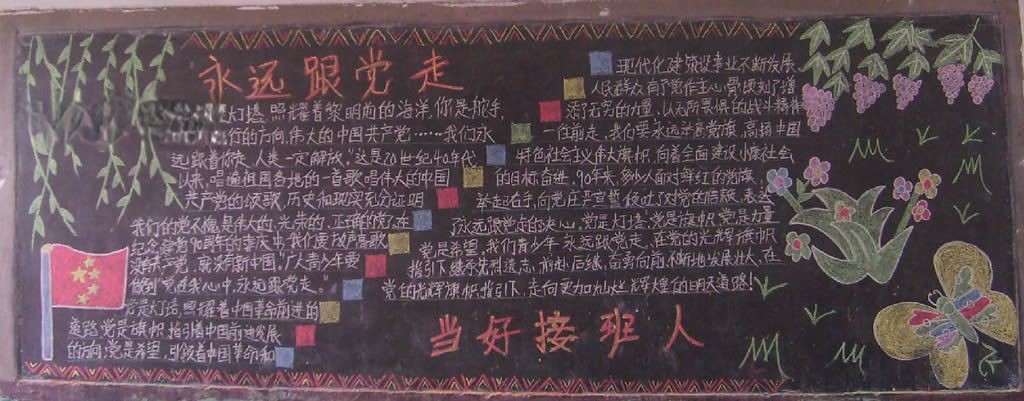 永远跟党走
灯塔,照耀着黎明前的海洋,你是舵手,
行的方向,伟大的中国共产党……我们永
远跟着你走,人类一定解放。"这是20世纪40年代
以来,唱遍祖国各地的一首歌唱伟大的中国
共产党的颂歌,历史和现实充分证明
我们的党不愧是伟大的、光荣的、正确的党。在
纪念建党90周年的喜庆中,我们度放声高歌
共产党,就没有新中国。"广大青少年要
做到"党在我心中,永远跟党走。"
党是灯塔,照耀着中国革命前进的
道路,党是旗帜,指引着中国前进发展
的方向;党是希望,引领着中国革命和
现代化建筑设事业不断发展
人民群众有了党作主心骨,顷刻了增
添了无穷的力量,以无所畏惧的战斗精神
一往前走。我们要永远举党旗,高扬中国
特色社会主义伟大旗帜,向着全面建设小康社会
的目标奋进。90年来,多少人面对鲜红的党旗
举起右手,向党庄严宣誓,倾吐了对党的信服,表达
了永远跟党走的决心,党是灯塔,党是旗帜,党是力量
党是希望,我们青少年永远跟党走,在党的光辉旗帜
指引下继承先烈遗志,前赴后继,奋勇向前,不断地发展壮大,在
党的光辉旗帜指引下,走向更加灿烂辉煌的明天道路!
当好接班人